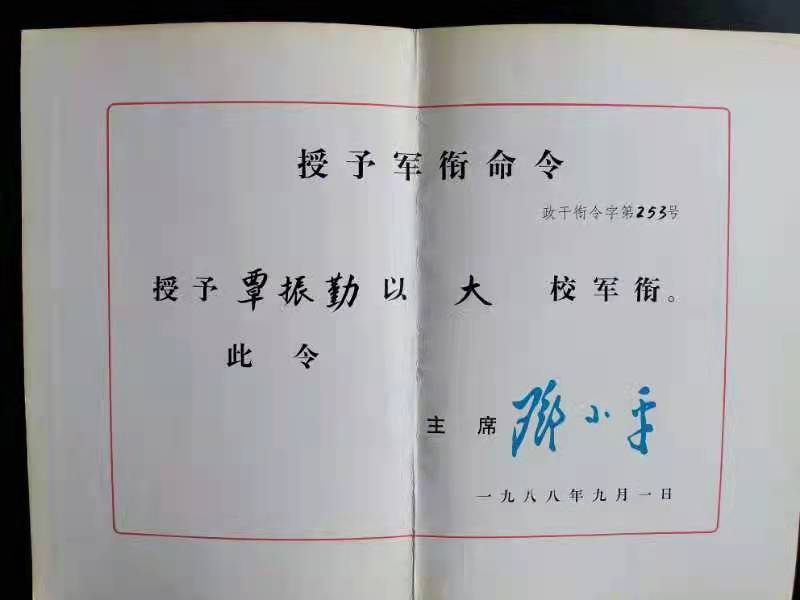 授予军衔命令
政干衔令字第253号
授予覃振勤以 大 校军衔。
此令
主席 邓小平
一九八八年九月一日